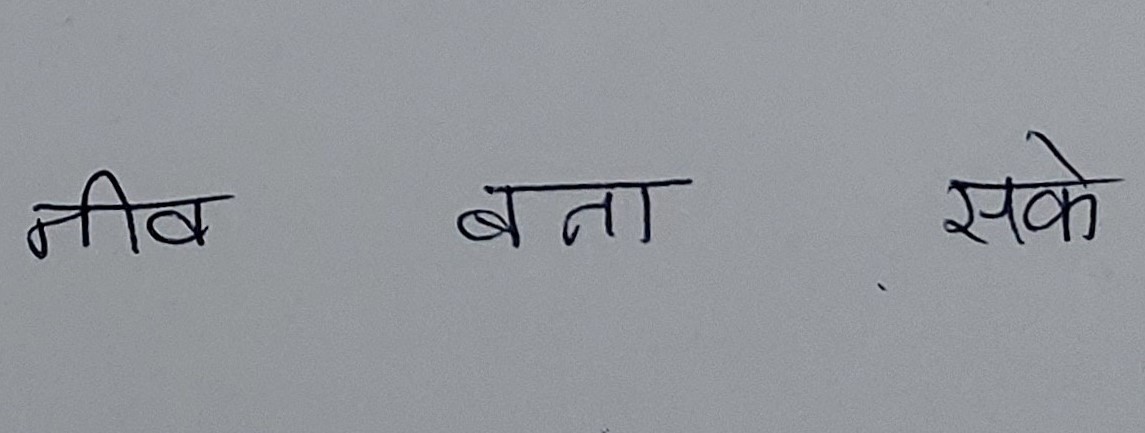 नीव बता सके